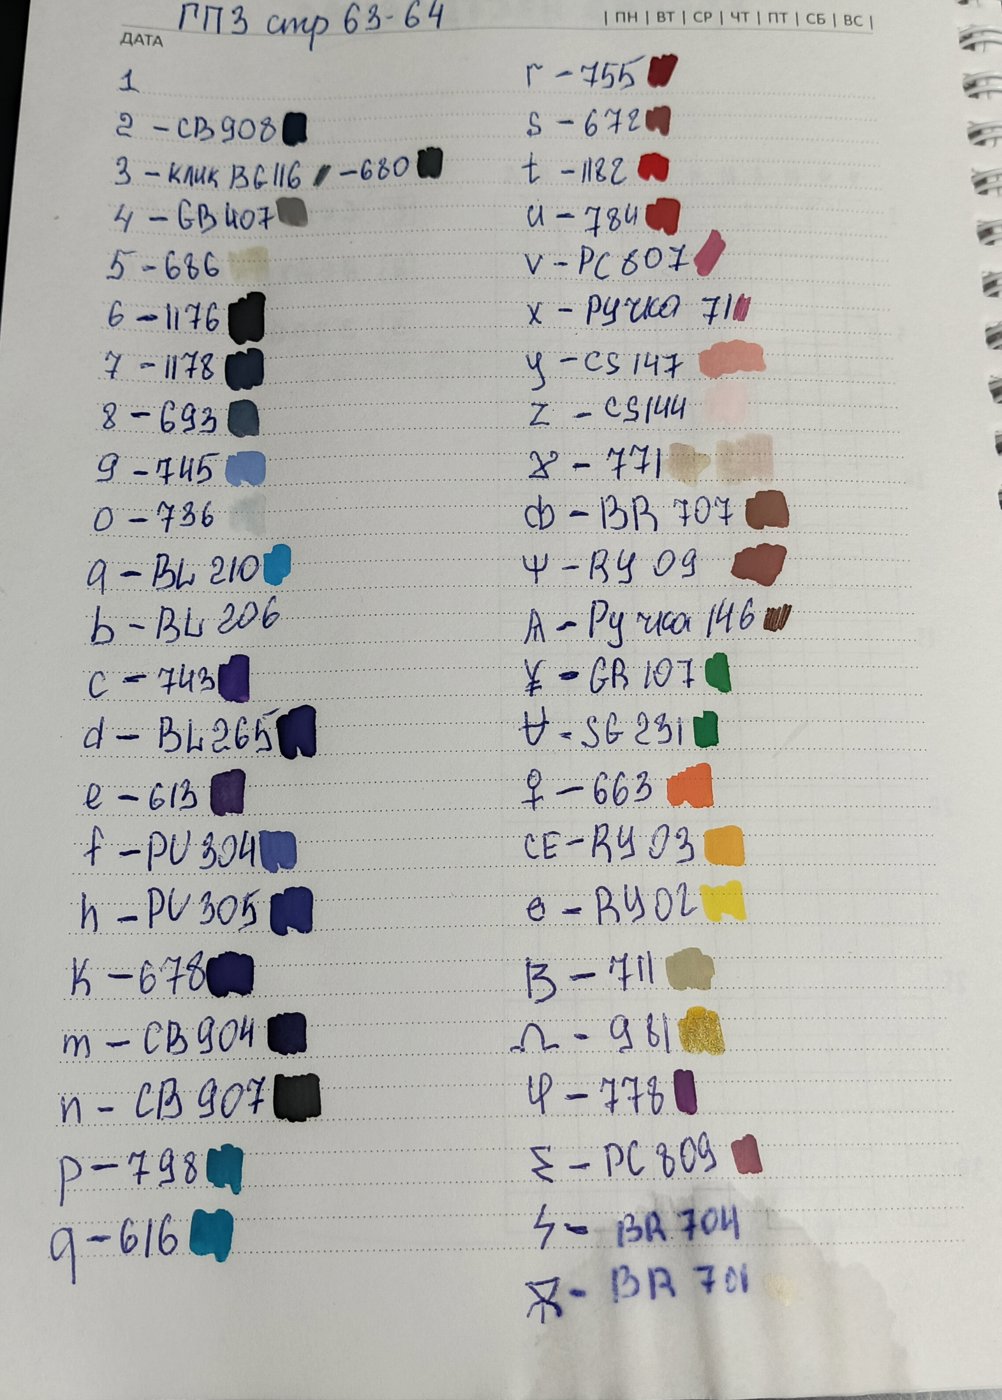 ГПЗ стр 63-64
| ПН | ВТ | СР | ЧТ | ПТ | СБ | ВС |
ДАТА
1
2 - CB 908
3 - клик BG 116 - 680
4 - GB 407
5 - 686
6 - 1176
7 - 1178
8 - 693
9 - 745
0 - 736
a - BL 210
b - BL 206
c - 743
d - BL 265
e - 613
f - PU 304
h - PU 305
K - 678
m - CB 904
n - CB 907
p - 798
q - 616
r - 755
s - 672
t - 1182
u - 784
v - PC 807
x - Ручка 71
y - CS 147
z - CS 144
- 771
ф - BR 707
Ψ - RY 09
A - Ручка 146
¥ - GR 107
∀ - SG 231
♀ - 663
CE - RY 03
ө - RY 02
B - 711
Ω - 981
φ - 778
Σ - PC 809
ϟ - BR 704
Ж - BR 701